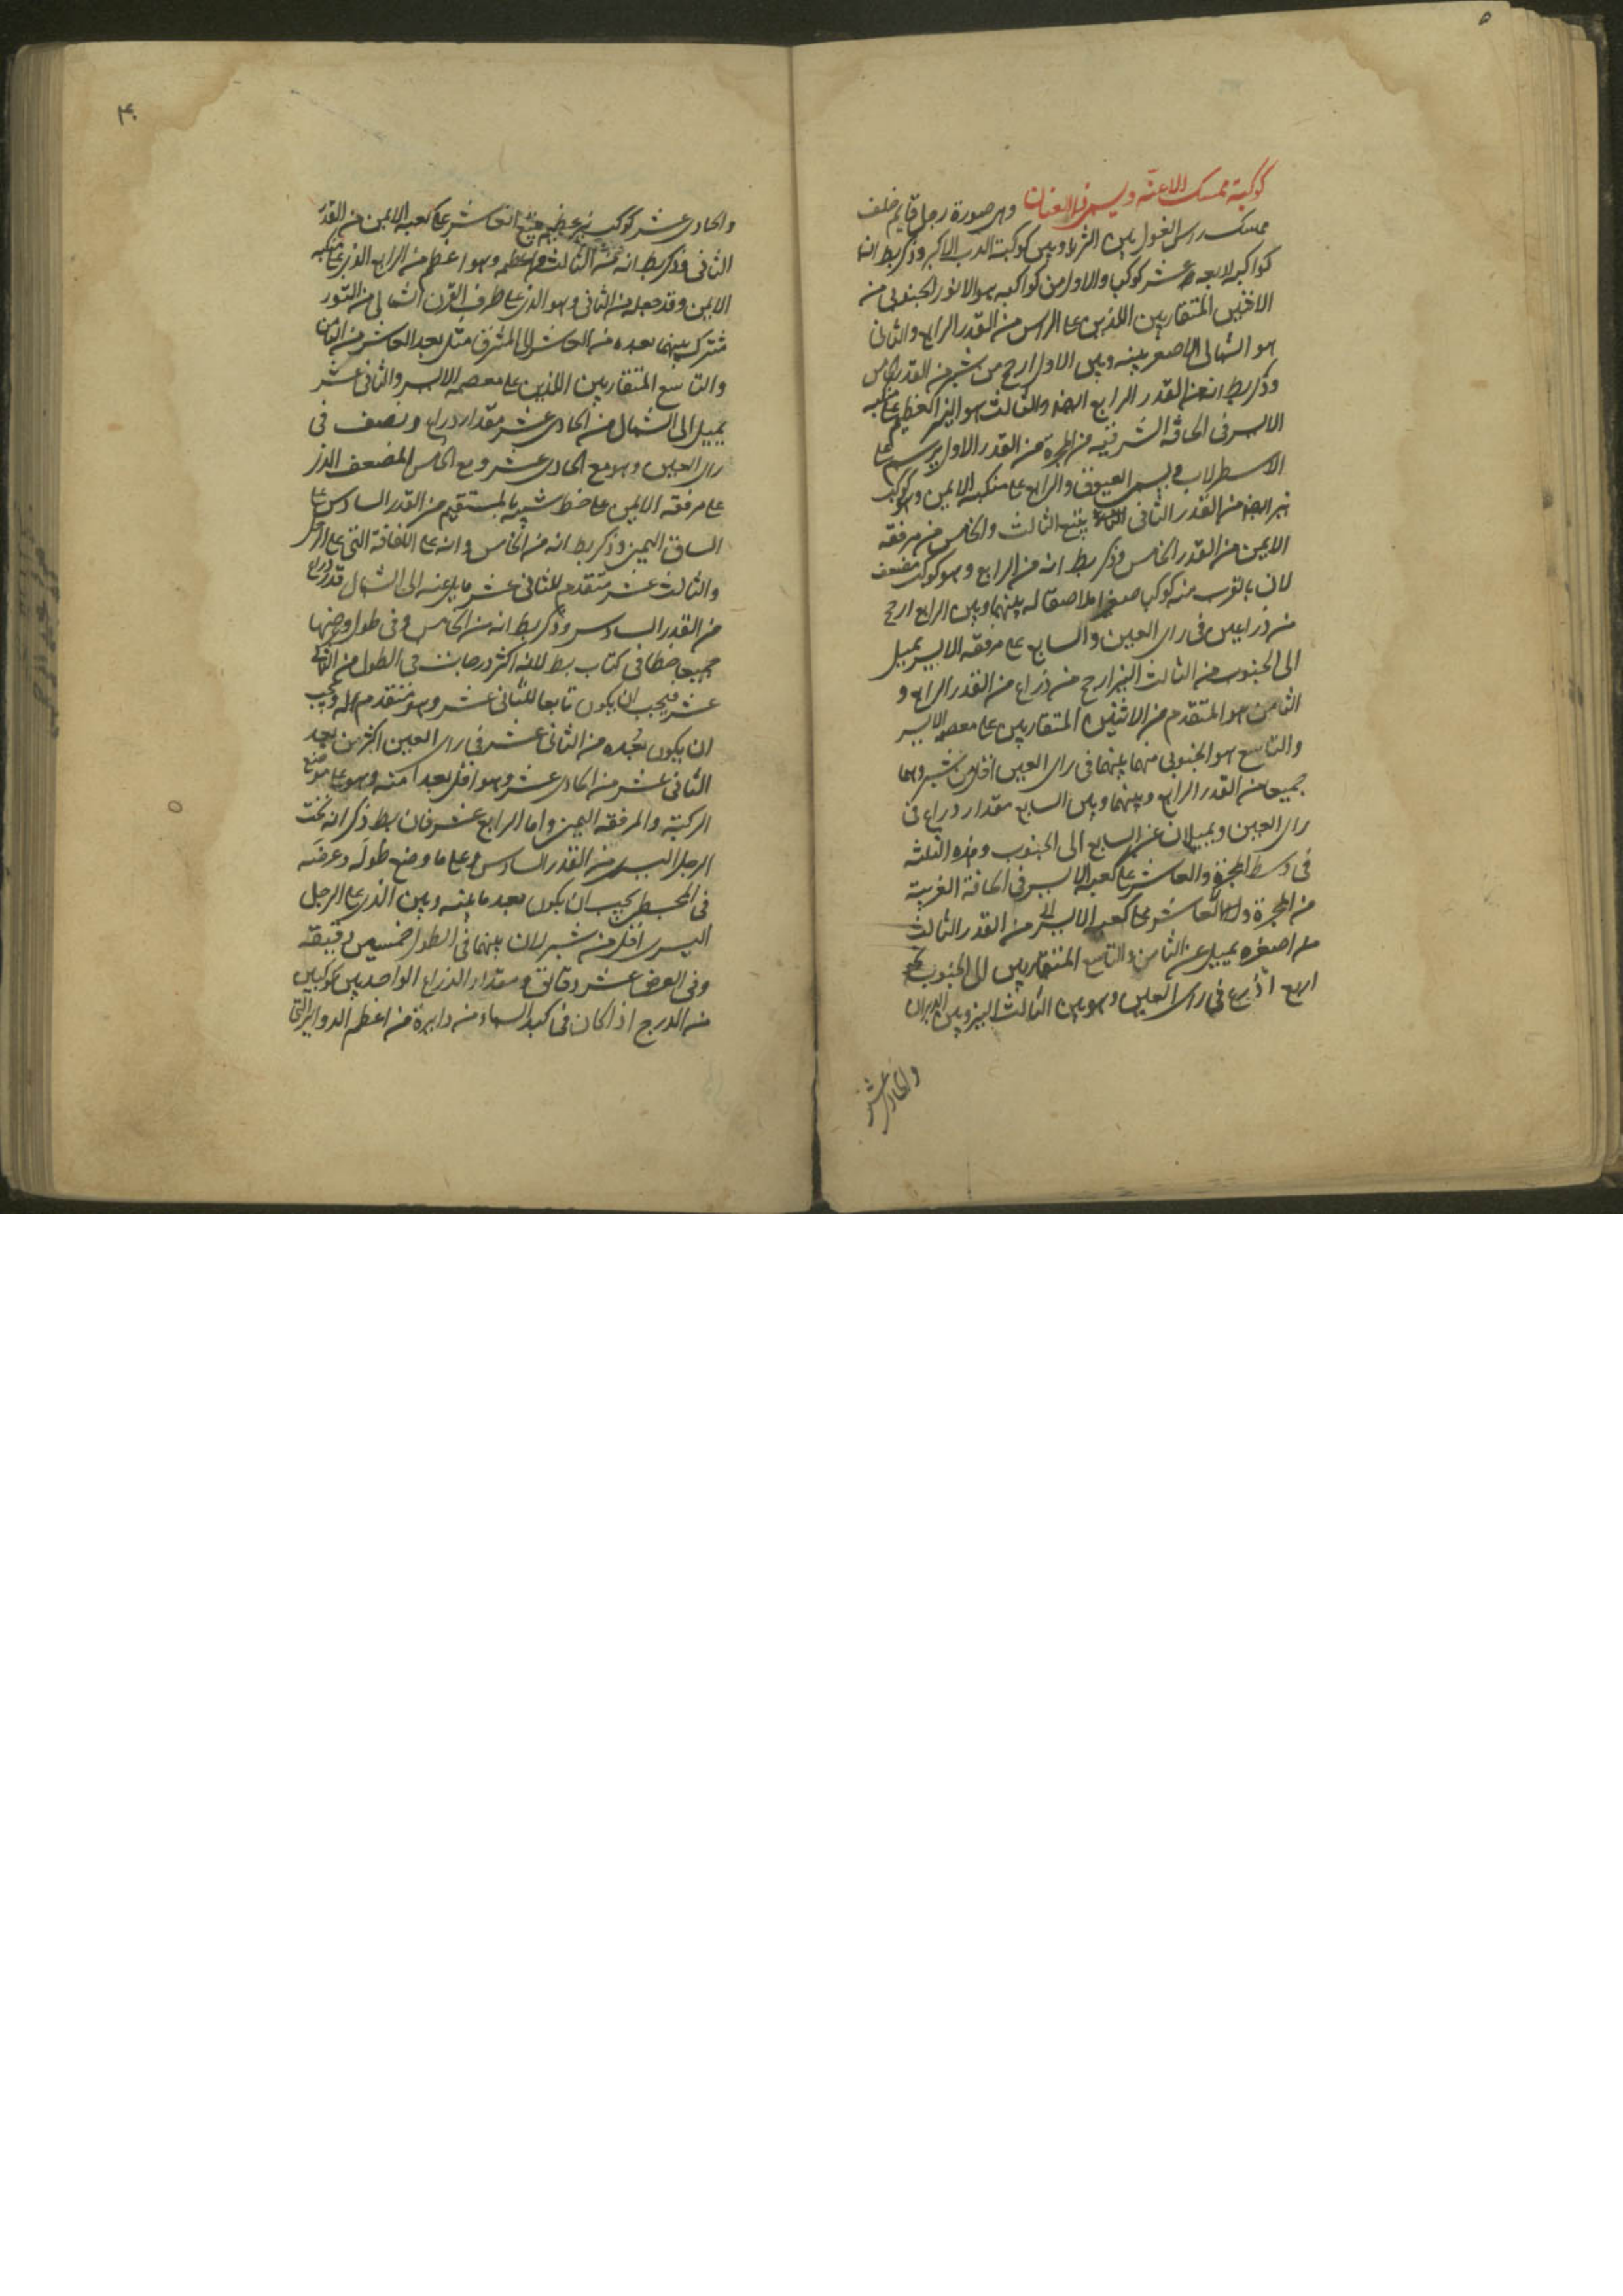 ٥
كوكبة ممسك الاعنّة ويسمى ذا العنان وهى صورة رجل قايم خلف
ممسك راس الغول بين الثريا وبين كوكبة الدب الاكبر وذكر بط ان
كواكبه اربعة عشر كوكبا والاول من كواكبه هو الانور الجنوبى من
الاثنين المتقاربين اللذين على الراس من القدر الرابع والثانى
هو الشمالى الاصغر بينه وبين الاول ارجح من شبر من القدر الخامس
وذكر بط انه من القدر الرابع ايضا والثالث هو النير العظيم على منكبه
الايسر فى الحافة الشرقية من المجرة من القدر الاول يرسم على
الاسطرلاب ويسمى العيوق والرابع على منكبه الايمن وهو كوكب
نير ايضا من القدر الثانى يتبع الثالث والخامس من مرفقه
الايمن من القدر الخامس وذكر بط انه من الرابع وهو كوكب مضعف
لان بالقرب منه كوكبا صغيرا ملاصقا له بينهما وبين الرابع ارجح
من ذراعين فى راى العين والسابع على مرفقه الايسر يميل
الى الجنوب من الثالث النير ارجح من ذراع من القدر الرابع و
الثامن هو المتقدم من الاثنين المتقاربين على معصمه الايسر
والتاسع هو الجنوبى منهما بينهما فى راى العين اقل من شبر وهما
جميعا من القدر الرابع وبينهما وبين السابع مقدار ذراع فى
راى العين ويميلان عن السابع الى الجنوب وهذه الثلثة
فى وسط المجرة والعاشر على كعبه الايسر فى الحافة الغربية
من المجرة والعاشر على كعبه الايسر من القدر الثالث
من اصغره يميل عن الثامن والتاسع المتقاربين الى الجنوب نحو
اربع اذرع فى راى العين وهو بين الثالث النير وبين الدبران
والحادى عشر
٤٠
والحادى عشر كوكب نير عظيم يتبع العاشر على كعبه الايمن من القدر
الثانى وذكر بط انه من الثالث واعظمه وهو اعظم من الرابع الذى على منكبه
الايمن وقد جعله من الثانى وهو الذى على طرف القرن الشمالى من الثور
مشترك بينهما بعده من العاشر الى المشرق مثل بعد العاشر من الثامن
والتاسع المتقاربين اللذين على معصمه الايسر والثانى عشر
يميل الى الشمال من الحادى عشر مقدار ذراع ونصف فى
راى العين وهو مع الحادى عشر ومع الخامس المضعف الذى
على مرفقه الايمن على خط شبيه بالمستقيم من القدر السادس على
الساق اليمنى وذكر بط انه من الخامس وانه على اللفافة التى على الرجل
والثالث عشر متقدم للثانى عشر مايل عنه الى الشمال قدر ذراع
من القدر السادس وذكر بط انه من الخامس وفى طوله وعرضها
جميعا خطا فى كتاب بط لانه اكثر درجات فى الطول من الثانى
عشر فيجب ان يكون تابعا للثانى عشر وهو متقدم له ويجب
ان يكون بُعده من الثانى عشر فى راى العين اكثر من بعد
الثانى عشر من الحادى عشر وهو اقل بعدا منه وهو على موضع
الركبة والمرفقه اليمنى واما الرابع عشر فان بط ذكر انه تحت
الرجل اليسرى من القدر السادس وعلى ما وضع طوله وعرضه
فى المجسطى يجب ان يكون بعد ما بينه وبين الذى على الرجل
اليسرى اقل من شبر لان بينهما فى الطول خمسين دقيقة
وفى العرض عشر دقائق ومقدار الذراع الواحد بين كوكبين
من الدرج اذا كان فى كبد السماء من دايرة من اعظم الدواير التى